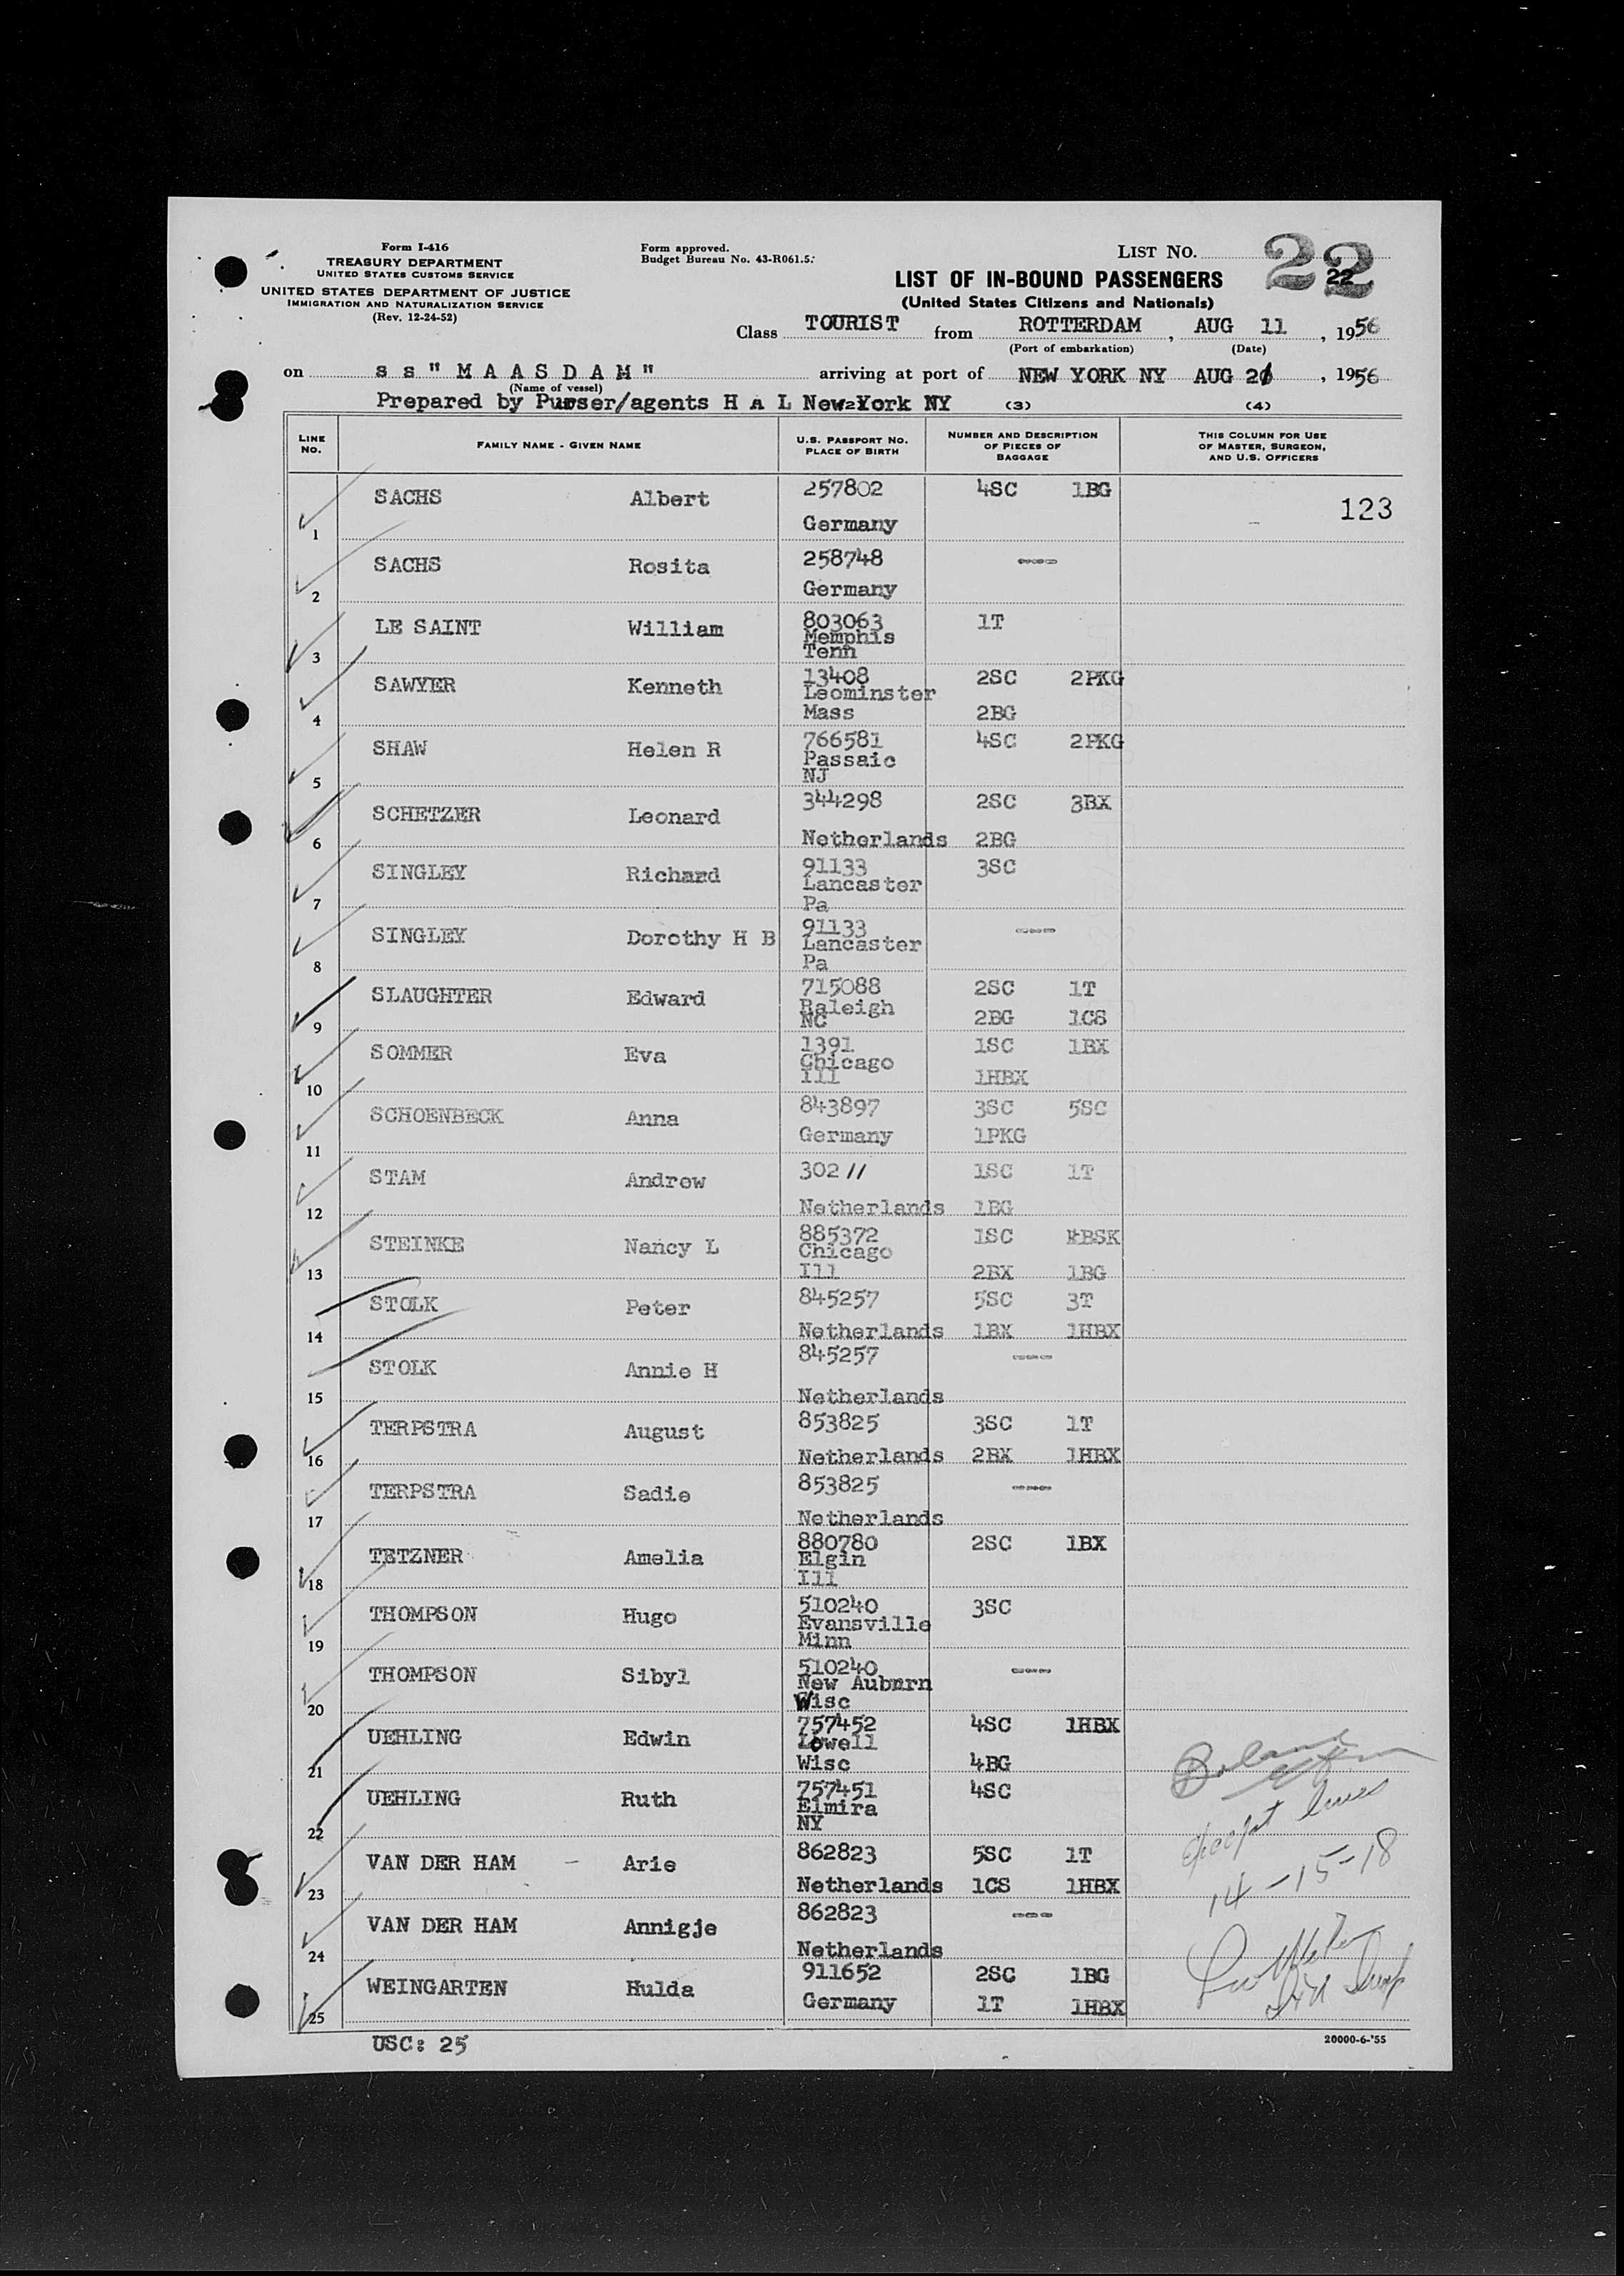 Form I-416
TREASURY DEPARTMENT
UNITED STATES CUSTOMS SERVICE
UNITED STATES DEPARTMENT OF JUSTICE
IMMIGRATION AND NATURALIZATION SERVICE
(Rev. 12-24-52)
Form approved.
Budget Bureau No. 43-R061.5.
LIST NO. 22
22
LIST OF IN-BOUND PASSENGERS
(United States Citizens and Nationals)
Class TOURIST from ROTTERDAM, AUG 11, 1956
(Port of embarkation) (Date)
on s s " M A A S D A M " arriving at port of NEW YORK NY AUG 21, 1956
(Name of vessel)
Prepared by Purser/agents H A L New York NY (3) (4)
LINE NO. FAMILY NAME - GIVEN NAME U.S. PASSPORT NO. PLACE OF BIRTH NUMBER AND DESCRIPTION OF PIECES OF BAGGAGE THIS COLUMN FOR USE OF MASTER, SURGEON, AND U.S. OFFICERS
1 SACHS Albert 257802 Germany 4SC 1BG 123
2 SACHS Rosita 258748 Germany ----
3 LE SAINT William 803063 Memphis Tenn 1T
4 SAWYER Kenneth 13408 Leominster Mass 2SC 2PKG 2BG
5 SHAW Helen R 766581 Passaic NJ 4SC 2PKG
6 SCHETZER Leonard 344298 Netherlands 2SC 3BX 2BG
7 SINGLEY Richard 91133 Lancaster Pa 3SC
8 SINGLEY Dorothy H B 91133 Lancaster Pa ----
9 SLAUGHTER Edward 715088 Raleigh NC 2SC 1T 2BG 1CS
10 SOMMER Eva 1391 Chicago Ill 1SC 1BX 1HBX
11 SCHOENBECK Anna 843897 Germany 3SC 5SC 1PKG
12 STAM Andrew 30211 Netherlands 1SC 1T 1BG
13 STEINKE Nancy L 885372 Chicago Ill 1SC 1BSK 2BX 1BG
14 STOLK Peter 845257 Netherlands 5SC 3T 1BX 1HBX
15 STOLK Annie H 845257 Netherlands ----
16 TERPSTRA August 853825 Netherlands 3SC 1T 2BX 1HBX
17 TERPSTRA Sadie 853825 Netherlands ----
18 TETZNER Amelia 880780 Elgin Ill 2SC 1BX
19 THOMPSON Hugo 510240 Evansville Minn 3SC
20 THOMPSON Sibyl 510240 New Auburn Wisc ----
21 UEHLING Edwin 757452 Lowell Wisc 4SC 1HBX 4BG
22 UEHLING Ruth 757451 Elmira NY 4SC
23 VAN DER HAM - Arie 862823 Netherlands 5SC 1T 1CS 1HBX
24 VAN DER HAM Annigje 862823 Netherlands ----
25 WEINGARTEN Hulda 911652 Germany 2SC 1BG 1T 1HBX
except lines
14-15-18
USC: 25
20000-6-'55